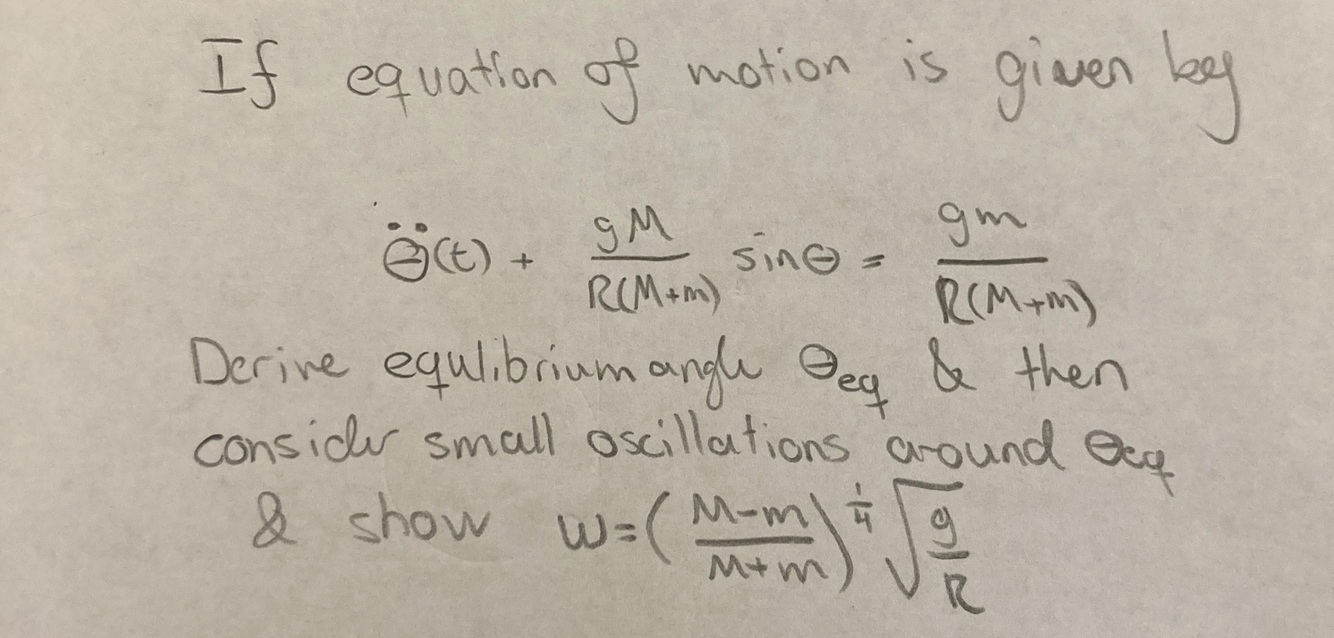 If equation of motion is given by
Θ̈(t) + gM/R(M+m) sinΘ = gm/R(M+m)
Derive equlibrium angle Θeq & then
consider small oscillations around Θeq
& show w=(M-m/M+m)^1/4 √g/R